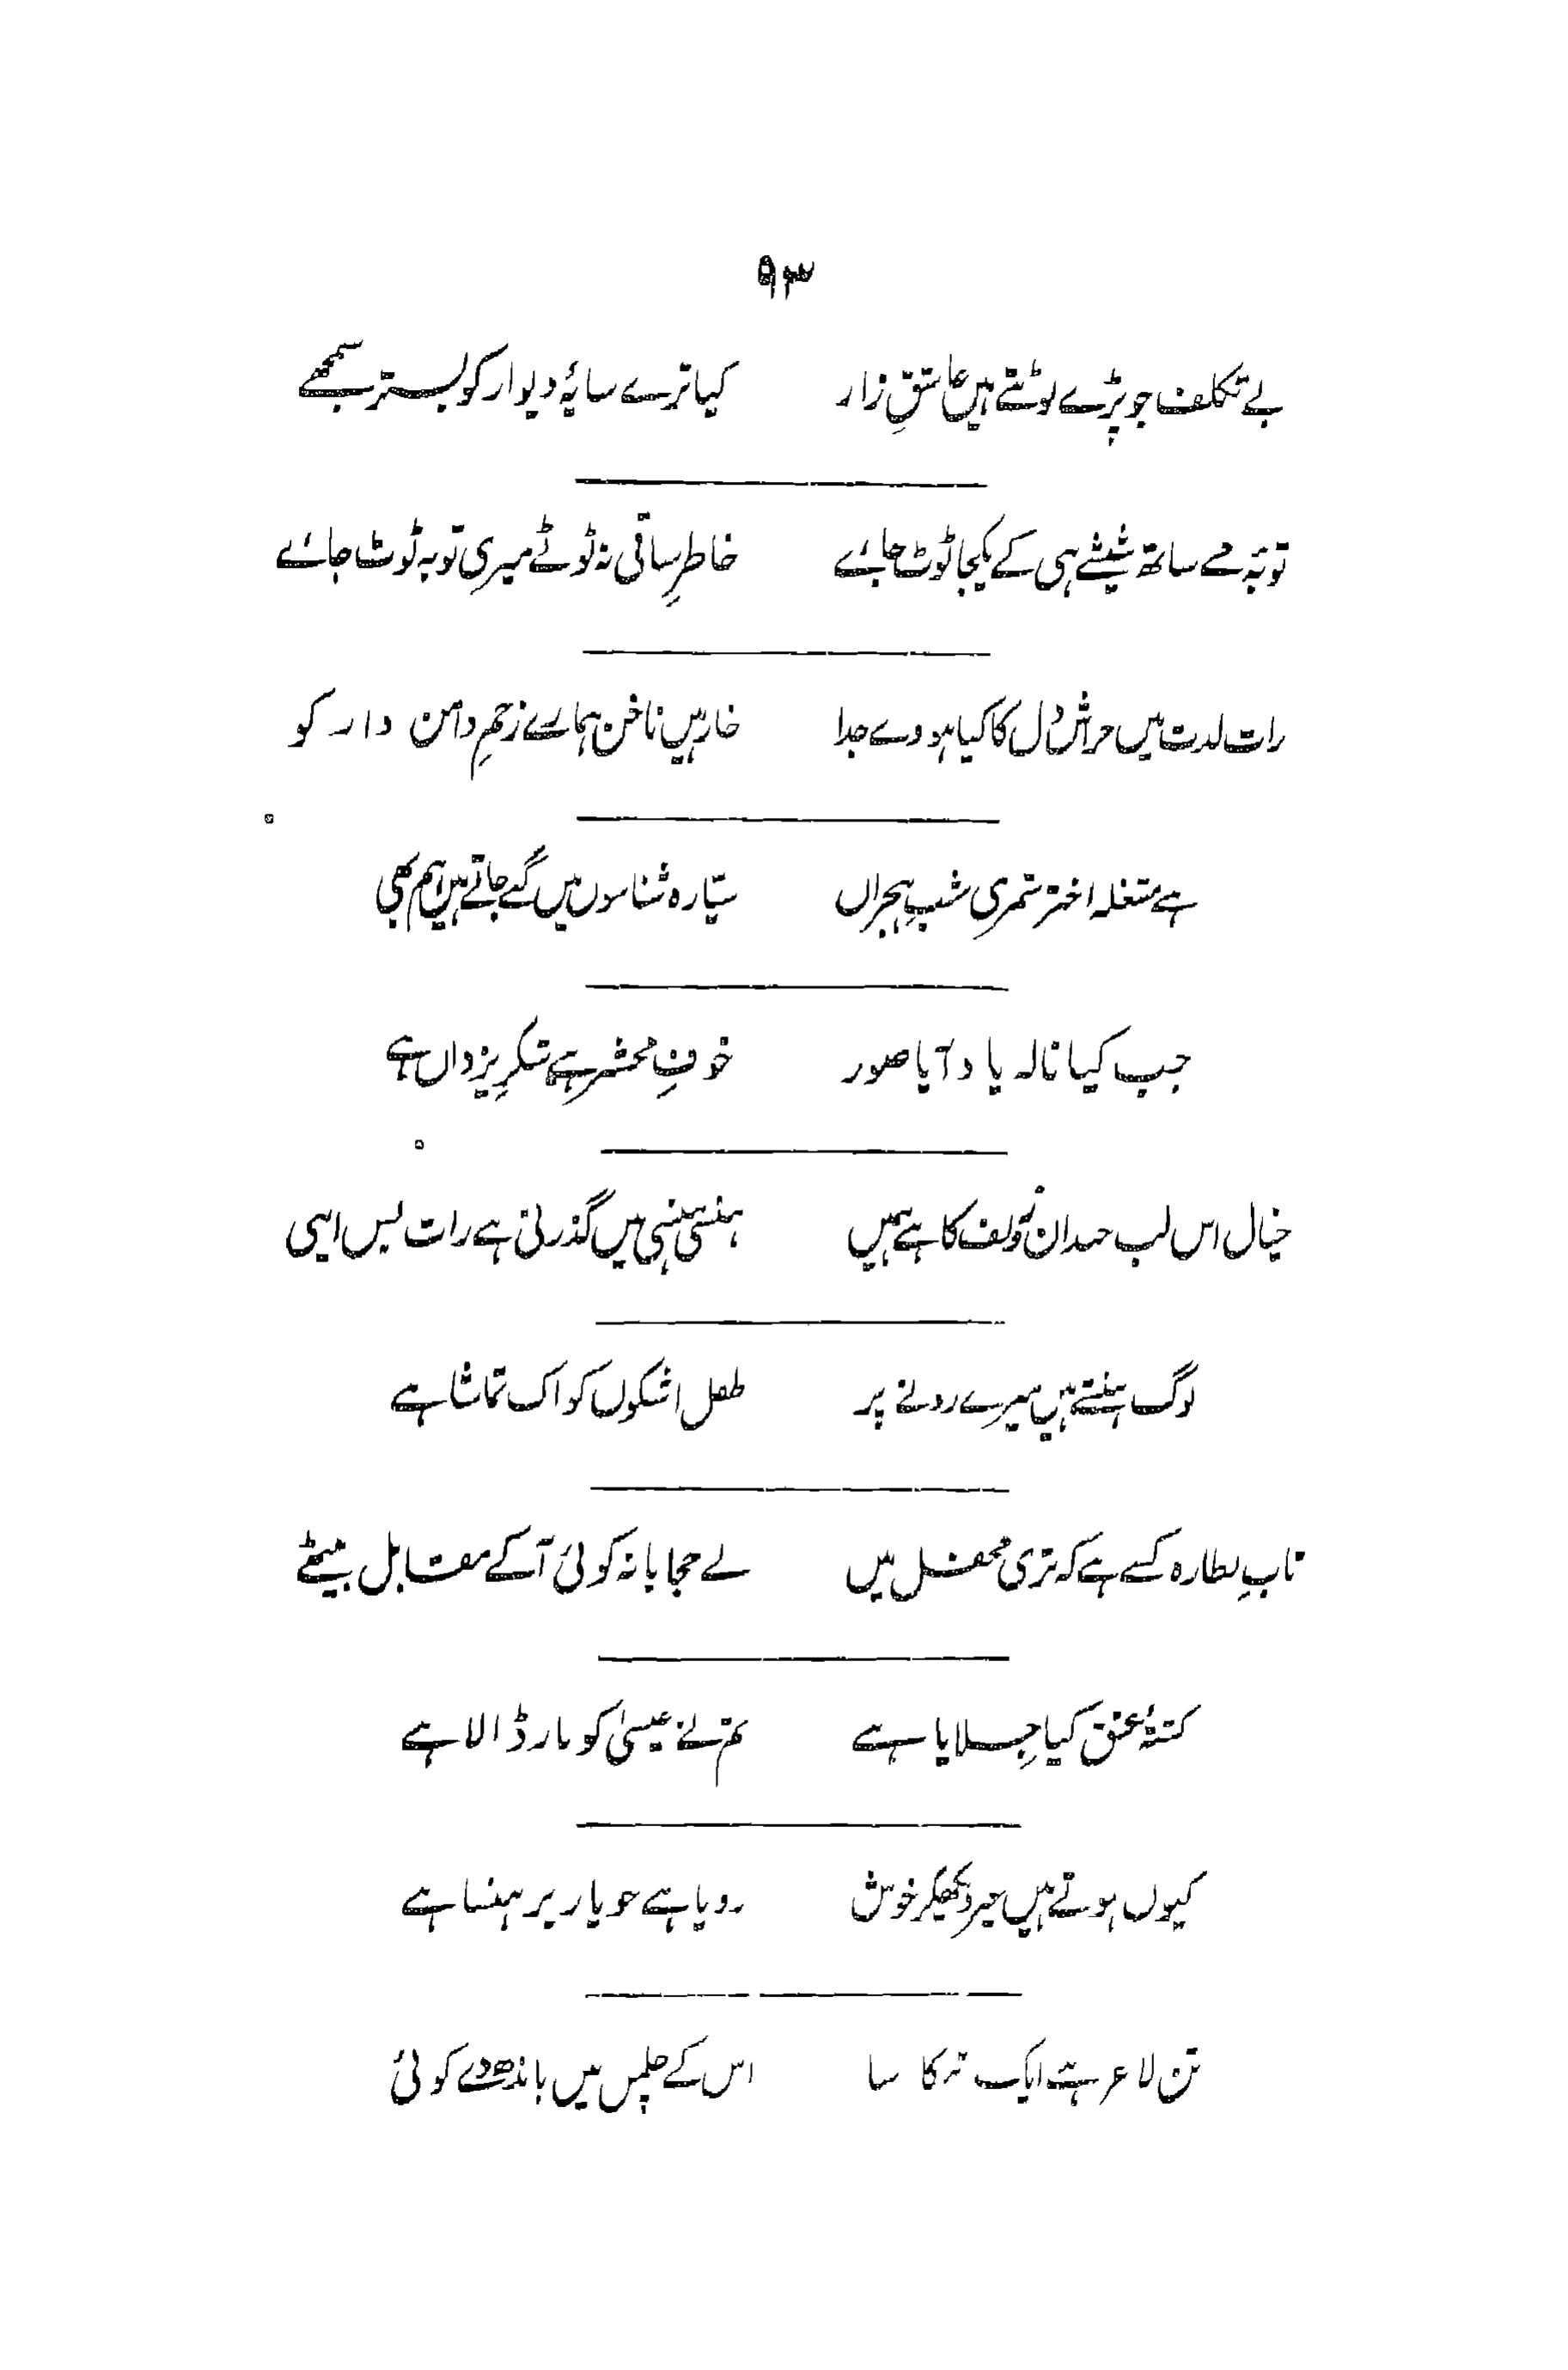 ۹۳
بے تکلف جو پڑے لوٹتے ہیں عاشقِ زار کیا ترے سایۂ دیوار کو بستر سمجھے
توبۂ مے ساتھ شیشے ہی کے یکجا ٹوٹ جائے خاطرِ ساقی نہ ٹوٹے میری توبہ ٹوٹ جائے
رات لذت میں خراش دل کا کیا ہووے جدا خار ہیں ناخن ہمارے زخمِ دامن دار کو
ہے مشغلہ اختر شمری شبِ ہجراں ستارہ شناسوں میں گنے جاتے ہیں ہم بھی
جب کیا نالہ یاد آیا صور خوفِ محشر ہے شکرِ یزداں ہے
خیال اس لب خندان زلف کا ہے ہمیں ہنسی ہنسی میں گذرتی ہے رات بس ایسی
لوگ ہنستے ہیں میرے رونے پر طفل اشکوں کو اک تماشا ہے
تابِ نظارہ کسے ہے کہ تری محفل میں بے حجابانہ کوئی آ کے مقابل بیٹھے
کشتۂ عشق کیا جِلایا ہے تم نے عیسیٰ کو مار ڈالا ہے
کیوں ہوتے ہیں غیر دیکھکر خوش رویا ہے جو یار پر ہنسا ہے
تن لاغر ہے ایک تنکا سا اس کے چلمن میں باندھ دے کوئی